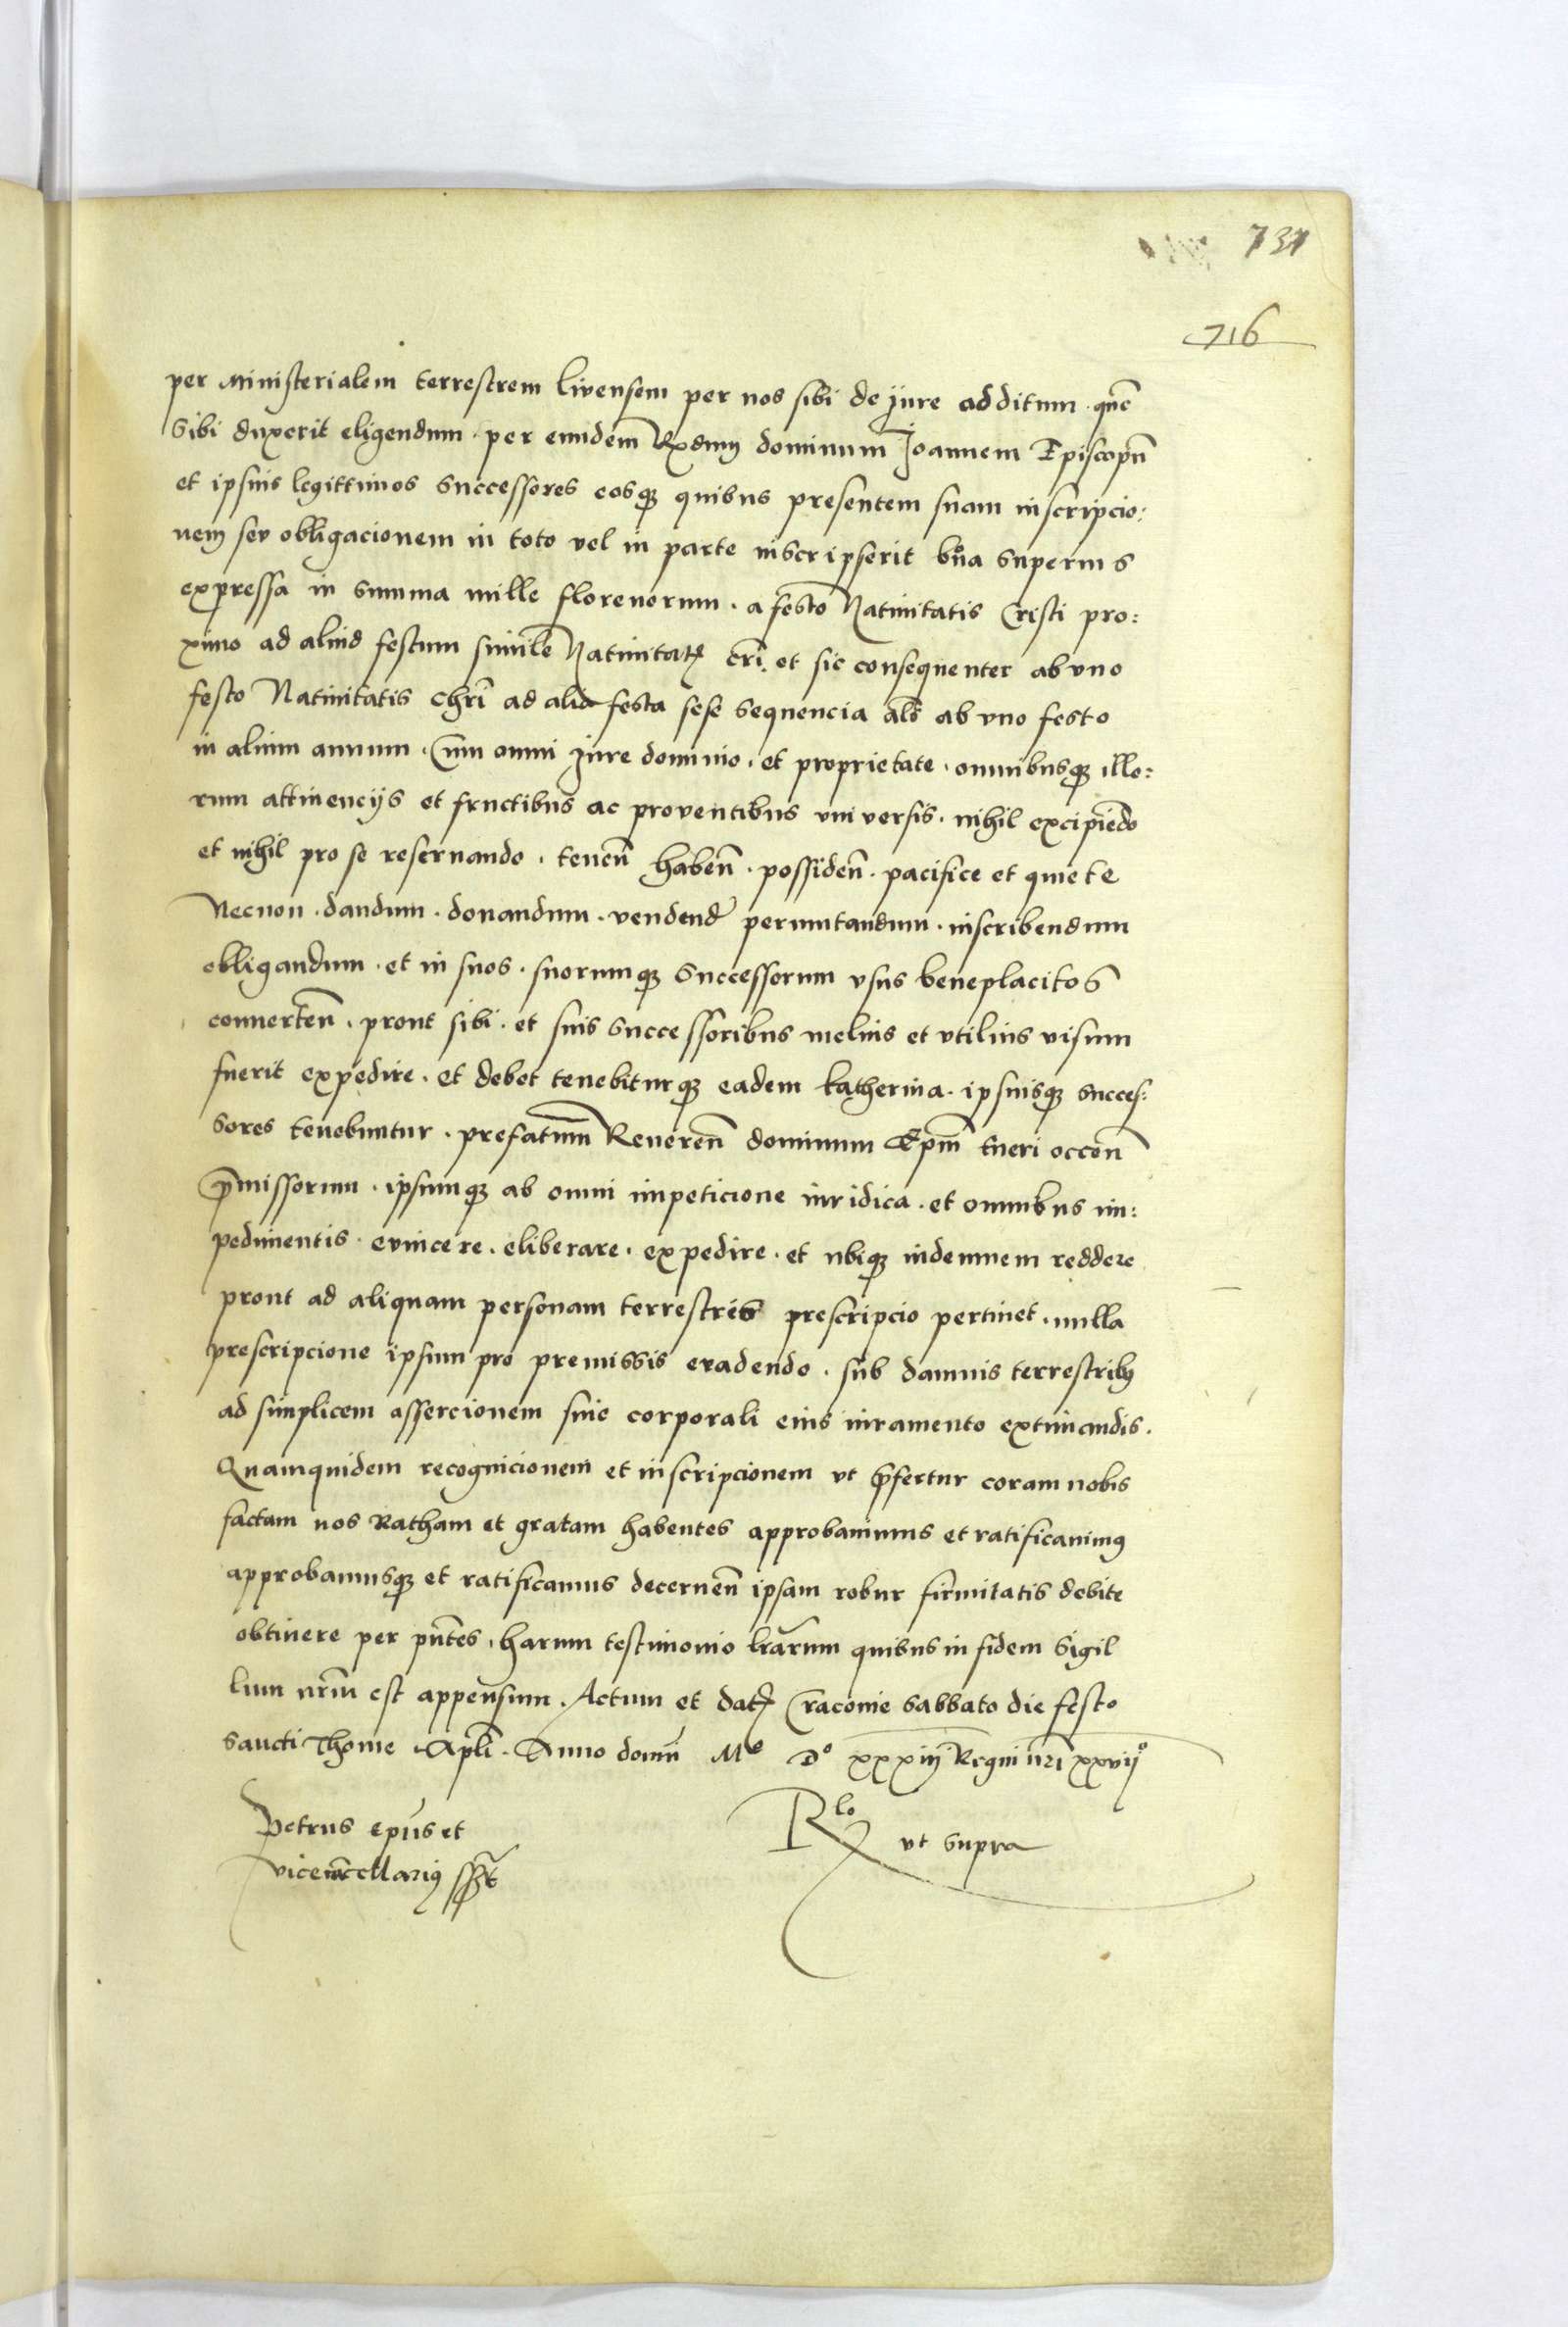 731
716
per Ministerialem terrestrem livensem per nos sibi de jure additum . quē
sibi duxerit eligendum . per eundem Rxdmū dominum Joannem Episcopū
et ipsius legittimos successores eosqȝ quibus presentem suam inscripcio:
nem seu obligacionem in toto vel in parte inscripserit bōna superius
expressa in summa mille florenorum . a festo Natiuitatis Cristi pro:
ximo ad aliud festum simile Natiuitatꝭ cri. et sic consequenter ab vno
festo Natiuitatis Chrī ad alia festa sese sequencia als̄ ab vno festo
in alium annum . Cum omni Jure dominio . et proprietate . omnibusqȝ illo:
rum attinencijs et fructibus ac prouentibus vniuersis . nihil excipiēdo
et nihil pro se reseruando . tenen̄ haben̄ . possiden̄ . pacifice et quiete
Necnon . dandum . donandum . vendend̄ permutandum . inscribendum
obligandum . et in suos . suorumqȝ successorum vsus beneplacitos
conuerten̄ . prout sibi . et suis successoribus melius et vtilius visum
fuerit expedire . et debet tenebiturqȝ eadem katherina . ipsiusqȝ succes:
sores tenebuntur . prefatum̄ Reueren̄ dominum Ep̄m tueri occon̄
p̄missorum . ipsumqȝ ab omni impeticione iuridica . et omnibus im:
pedimentis . euincere . eliberare . expedire . et vbiqȝ indemnem reddere
prout ad aliquam personam terrestris prescripcio pertinet . nulla
prescripcione ipsum pro premissis euadendo . sub damnis terrestribꝰ
ad simplicem assercionem siue corporali eius iuramento extimandis .
Quamquidem recognicionem et inscripcionem vt p̄fertur coram nobis
factam nos Ratham et gratam habentes approbauimus et ratificauimꝰ
approbamusqȝ et ratificamus decernen̄ ipsam robur firmitatis debite
obtinere per pn̄tes . harum testimonio lrārum quibus in fidem sigil
lum nrm̄ est appensum . Actum et datꝭ Cracouie sabbato die festo
sancti Thome Apli . Anno domī Mo Do xxxiij Regni nri xxvijo
Petrus epūs et
vicecancellariꝰ sszt
Rlo vt supra